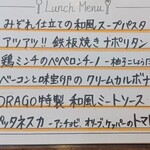 Lunch Menu
みぞれ仕立ての和風スープパスタ
アツアツ!! 鉄板焼きナポリタン
鶏ミンチのペペロンチーノ
ベーコンと味室9Pの クリームカルボナ
DRAGO特製 和風ミートソース
ペッタネスカ -アンチョビ、オリーブ、ケッパーのトマト